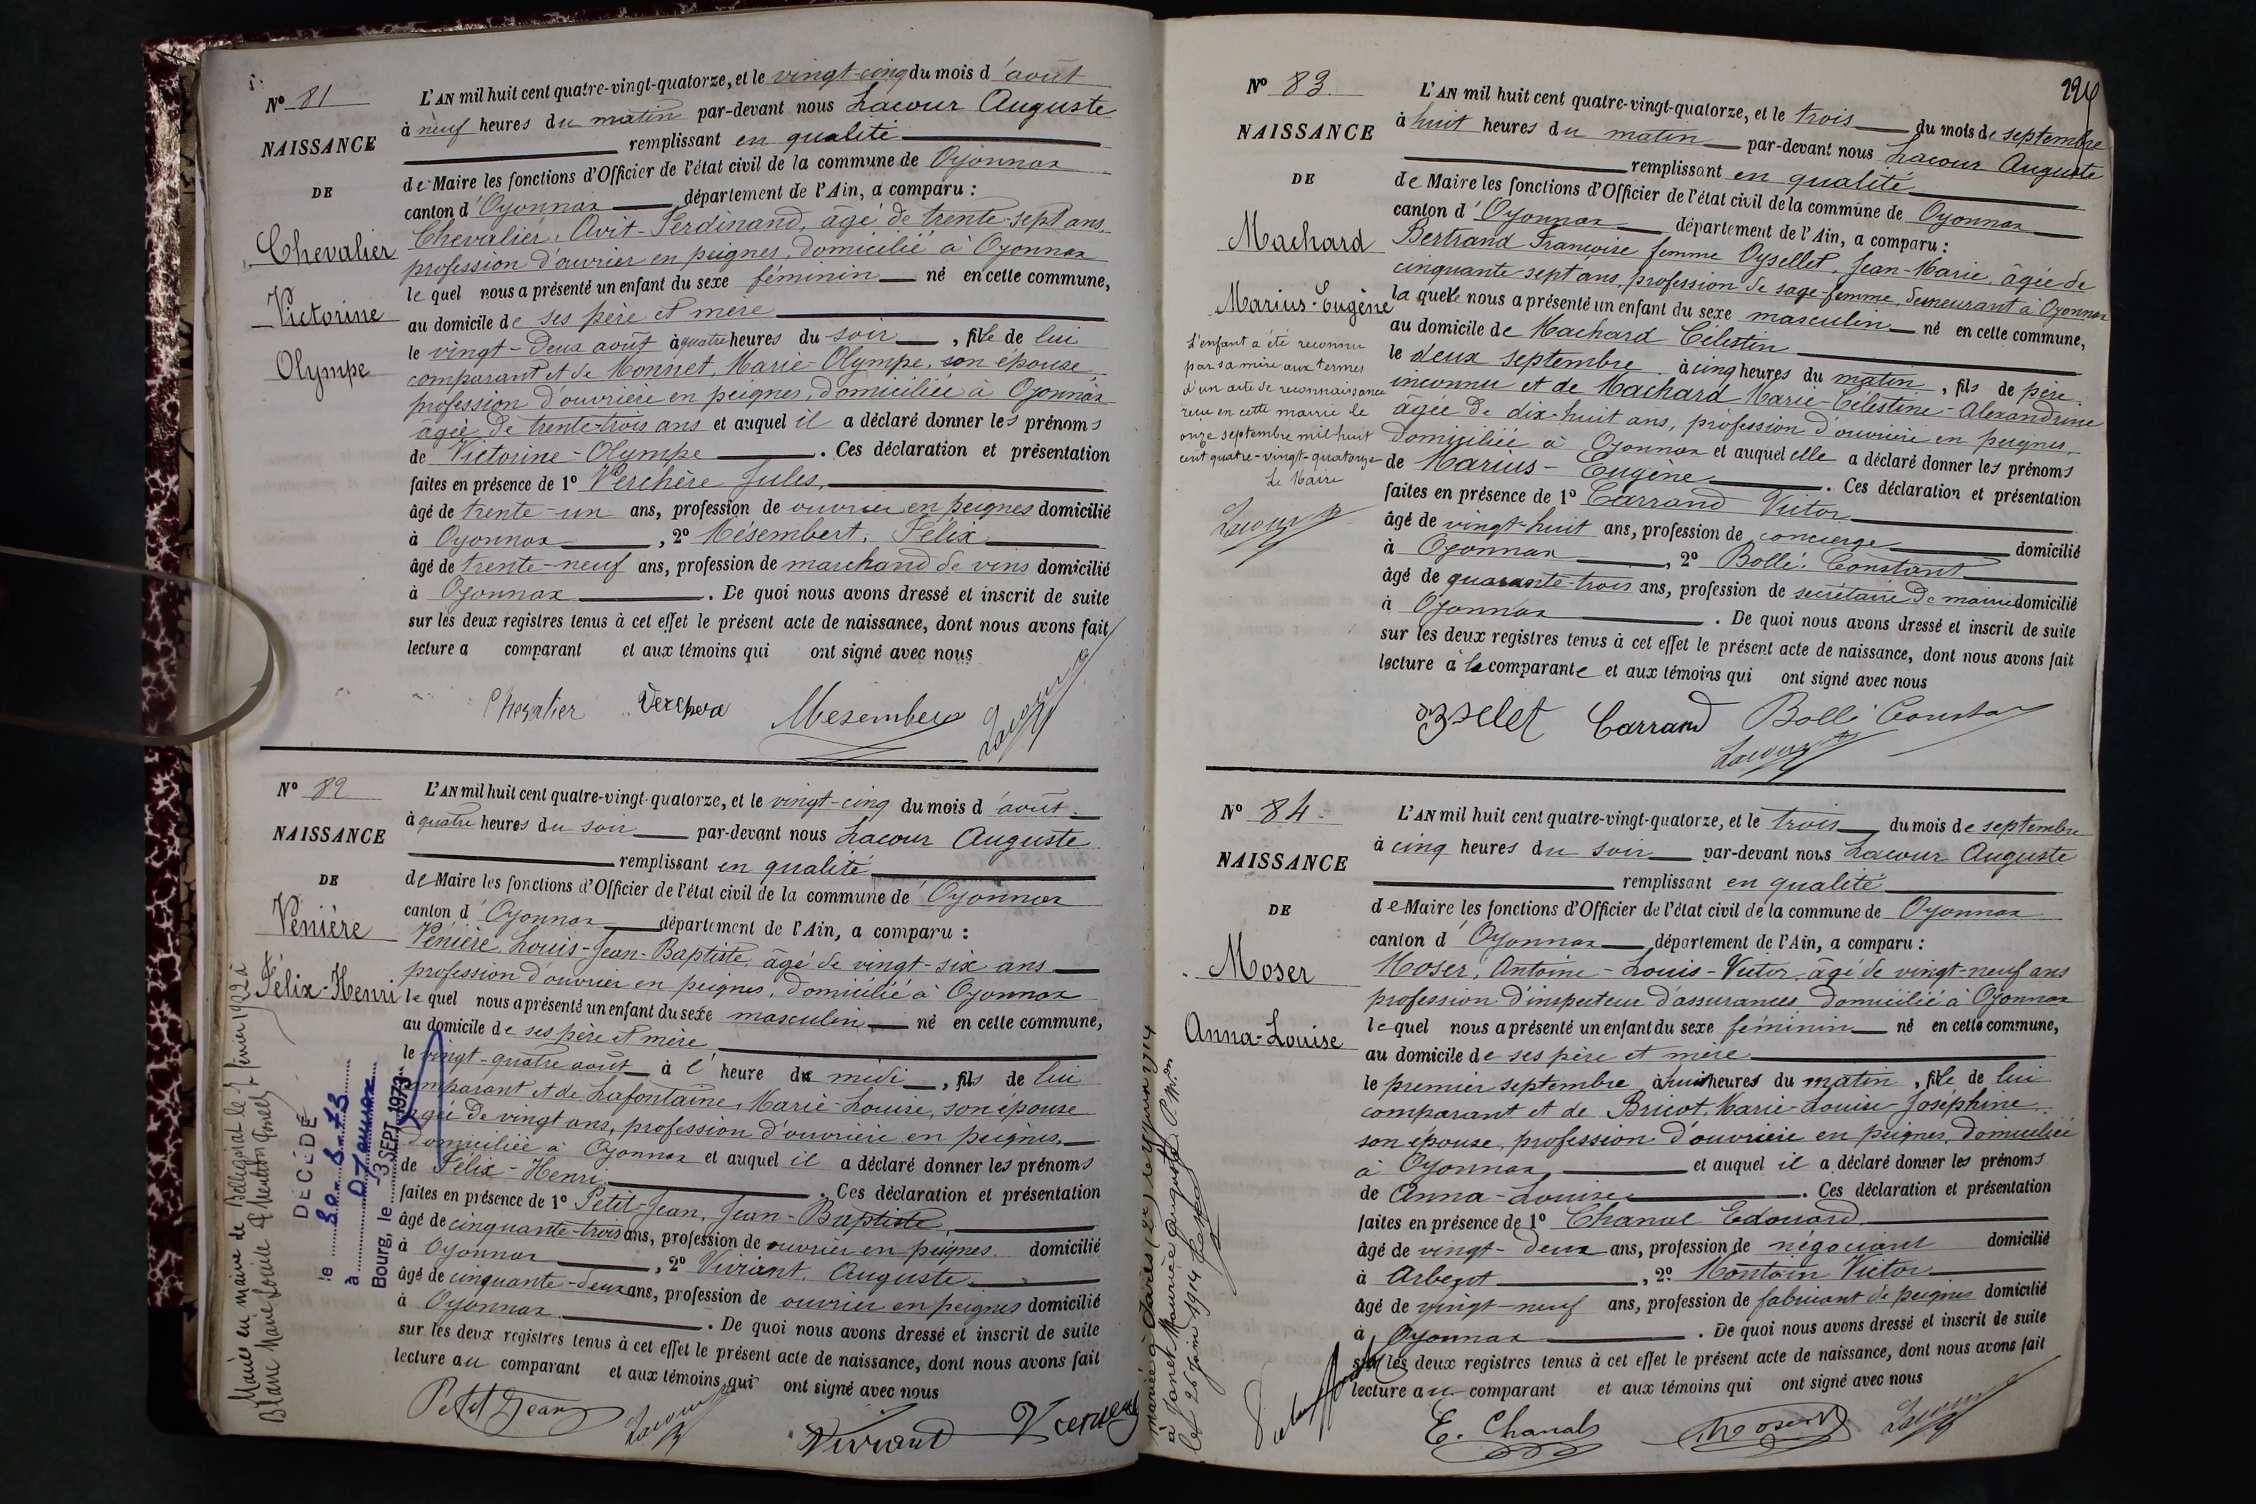 Nº 81
NAISSANCE
DE
Chevalier
Victorine
Olympe
L'AN mil huit cent quatre-vingt-quatorze, et le vingt-cinq du mois d'août
à neuf heures du matin par-devant nous Lacour Auguste
remplissant en qualité
de Maire les fonctions d'Officier de l'état civil de la commune de Oyonnax
canton d'Oyonnax département de l'Ain, a comparu :
Chevalier, Avit-Ferdinand, âgé de trente-sept ans,
profession d'ouvrier en peignes, domicilié à Oyonnax
le quel nous a présenté un enfant du sexe féminin né en cette commune,
au domicile de ses père et mère
le vingt-deux août à quatre heures du soir, fille de lui
comparant et de Monnet, Marie-Olympe, son épouse,
profession d'ouvrière en peignes, domiciliée à Oyonnax
âgée de trente-trois ans et auquel il a déclaré donner les prénoms
de Victorine-Olympe. Ces déclaration et présentation
faites en présence de 1º Verchère Jules,
âgé de trente-un ans, profession de ouvrier en peignes domicilié
à Oyonnax, 2º Mésembert, Félix
âgé de trente-neuf ans, profession de marchand de vins domicilié
à Oyonnax. De quoi nous avons dressé et inscrit de suite
sur les deux registres tenus à cet effet le présent acte de naissance, dont nous avons fait
lecture a comparant et aux témoins qui ont signé avec nous
Chevalier Mesember Lacour
Nº 82
NAISSANCE
DE
Vénière
Félix-Henri
L'AN mil huit cent quatre-vingt-quatorze, et le vingt-cinq du mois d'août
à quatre heures du soir par-devant nous Lacour Auguste
remplissant en qualité
de Maire les fonctions d'Officier de l'état civil de la commune de Oyonnax
canton d'Oyonnax département de l'Ain, a comparu :
Vénière, Louis-Jean-Baptiste, âgé de vingt-six ans
profession d'ouvrier en peignes, domicilié à Oyonnax
le quel nous a présenté un enfant du sexe masculin né en cette commune,
au domicile de ses père et mère
le vingt-quatre août à l'heure de midi, fils de lui
comparant et de Lafontaine, Marie-Louise, son épouse
âgée de vingt ans, profession d'ouvrière en peignes,
domiciliée à Oyonnax et auquel il a déclaré donner les prénoms
de Félix-Henri. Ces déclaration et présentation
faites en présence de 1º Petit-Jean, Jean-Baptiste,
âgé de cinquante-trois ans, profession de ouvrier en peignes domicilié
à Oyonnax, 2º Viviant, Auguste
âgé de cinquante-deux ans, profession de ouvrier en peignes domicilié
à Oyonnax. De quoi nous avons dressé et inscrit de suite
sur les deux registres tenus à cet effet le présent acte de naissance, dont nous avons fait
lecture au comparant et aux témoins qui ont signé avec nous
Petit Jean Lacour Viviant
Marié en mairie de Bellegarde le février 1922 à
Blanc Marie Louise
DÉCÉDÉ
le 30-8-73
à Oyonnax
Bourg, le 13 SEPT. 1973
224
Nº 83
NAISSANCE
DE
Machard
Marius-Eugène
L'enfant a été reconnu
par sa mère aux termes
d'un acte de reconnaissance
reçu en cette mairie le
onze septembre mil huit
cent quatre-vingt-quatorze
Le Maire
Lacour
L'AN mil huit cent quatre-vingt-quatorze, et le trois du mois de septembre
à huit heures du matin par-devant nous Lacour Auguste
remplissant en qualité
de Maire les fonctions d'Officier de l'état civil de la commune de Oyonnax
canton d'Oyonnax département de l'Ain, a comparu :
Bertrand Françoise femme Oysellet, Jean-Marie, âgée de
cinquante-sept ans, profession de sage-femme, demeurant à Oyonnax
la quelle nous a présenté un enfant du sexe masculin né en cette commune,
au domicile de Machard Célestin
le deux septembre à cinq heures du matin, fils de père
inconnu et de Machard Marie-Célestine-Alexandrine
âgée de dix-huit ans, profession d'ouvrière en peignes,
domiciliée à Oyonnax et auquel elle a déclaré donner les prénoms
de Marius-Eugène. Ces déclaration et présentation
faites en présence de 1º Carrand Victor
âgé de vingt-huit ans, profession de concierge domicilié
à Oyonnax, 2º Bollé Constant
âgé de quarante-trois ans, profession de secrétaire de mairie domicilié
à Oyonnax. De quoi nous avons dressé et inscrit de suite
sur les deux registres tenus à cet effet le présent acte de naissance, dont nous avons fait
lecture à la comparante et aux témoins qui ont signé avec nous
Carrand Bollé Constant
Lacour
Nº 84
NAISSANCE
DE
Moser
Anna-Louise
L'AN mil huit cent quatre-vingt-quatorze, et le trois du mois de septembre
à cinq heures du soir par-devant nous Lacour Auguste
remplissant en qualité
de Maire les fonctions d'Officier de l'état civil de la commune de Oyonnax
canton d'Oyonnax département de l'Ain, a comparu :
Moser, Antoine-Louis-Victor, âgé de vingt-neuf ans
profession d'inspecteur d'assurances domicilié à Oyonnax
le quel nous a présenté un enfant du sexe féminin né en cette commune,
au domicile de ses père et mère
le premier septembre à huit heures du matin, fille de lui
comparant et de Bricot, Marie-Louise-Joséphine
son épouse, profession d'ouvrière en peignes, domiciliée
à Oyonnax, et auquel il a déclaré donner les prénoms
de Anna-Louise. Ces déclaration et présentation
faites en présence de 1º Chanal Edouard
âgé de vingt-deux ans, profession de négociant domicilié
à Arbent, 2º Montoin Victor
âgé de vingt-neuf ans, profession de fabricant de peignes domicilié
à Oyonnax. De quoi nous avons dressé et inscrit de suite
sur les deux registres tenus à cet effet le présent acte de naissance, dont nous avons fait
lecture au comparant et aux témoins qui ont signé avec nous
E. Chanal Moser V Lacour
Mariée à Paris le juin 1914
à Janet Maurice Auguste
le 26 juin 1914